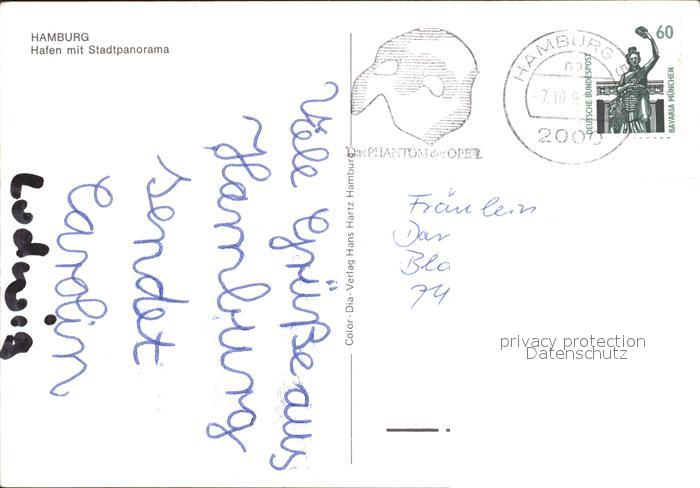 HAMBURG
Hafen mit Stadtpanorama
Viele Grüße aus
Hamburg
sendet
Carolin
Ludwig
Color-Dia-Verlag Hans Hartz Hamburg
Das PHANTOM der OPER
HAMBURG
2000
60
DEUTSCHE BUNDESPOST
BAVARIA MÜNCHEN
Fräulein
Dar
Bla
74
privacy protection
Datenschutz